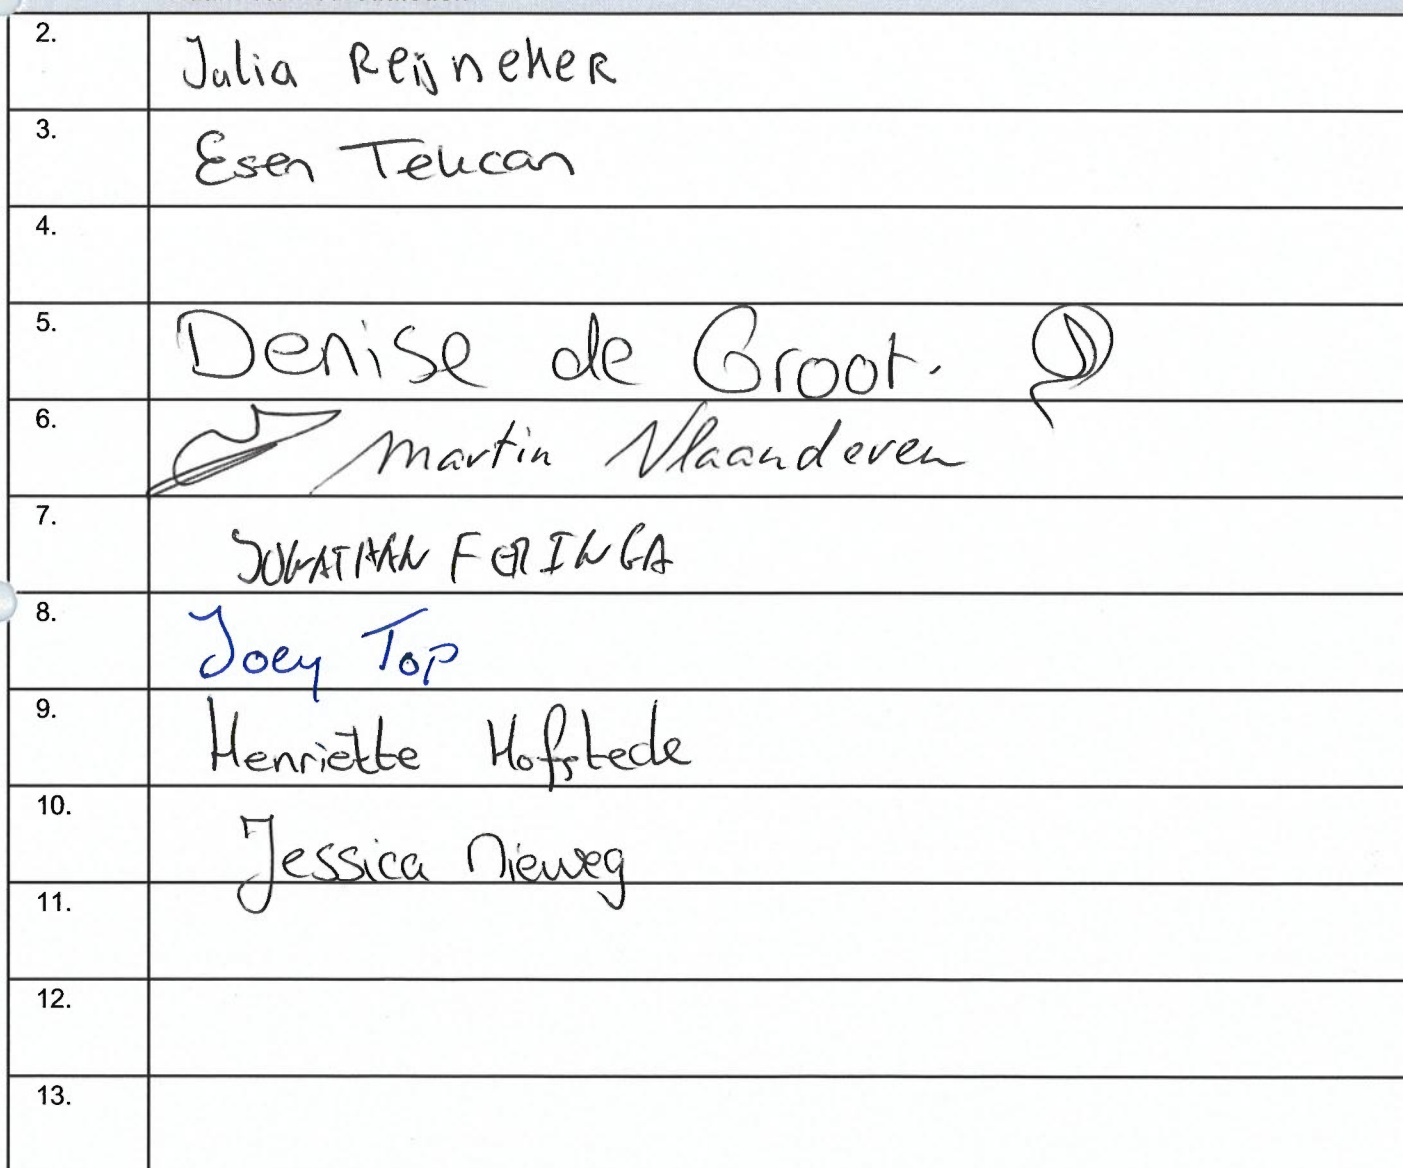 2. Julia Reijneker
3. Esen Tekcan
4.
5. Denise de Groot.
6. Martin Vlaanderen
7. JONATHAN FERINGA
8. Joey Top
9. Henriëtte Hofstede
10. Jessica Nieweg
11.
12.
13.